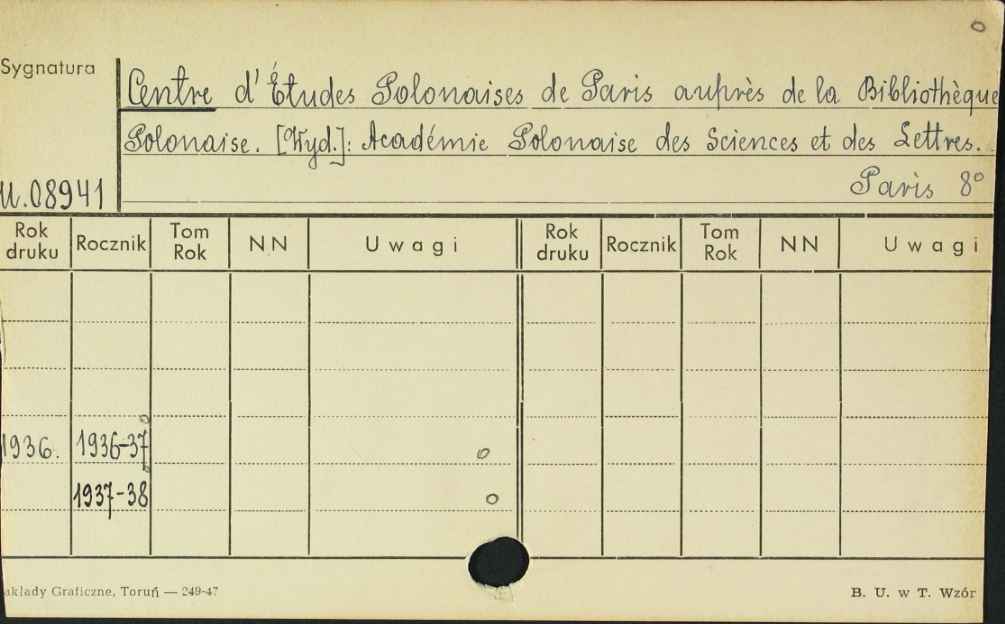 Sygnatura
Centre d'Études Polonaises de Paris auprès de la Bibliothèque
Polonaise. [Wyd.]: Académie Polonaise des Sciences et des Lettres.
U.08941
Paris 8°
Rok druku Rocznik Tom Rok NN Uwagi Rok druku Rocznik Tom Rok NN Uwagi
1936. 1936-37
1937-38
akłady Graficzne, Toruń — 249-47
B. U. w T. Wzór